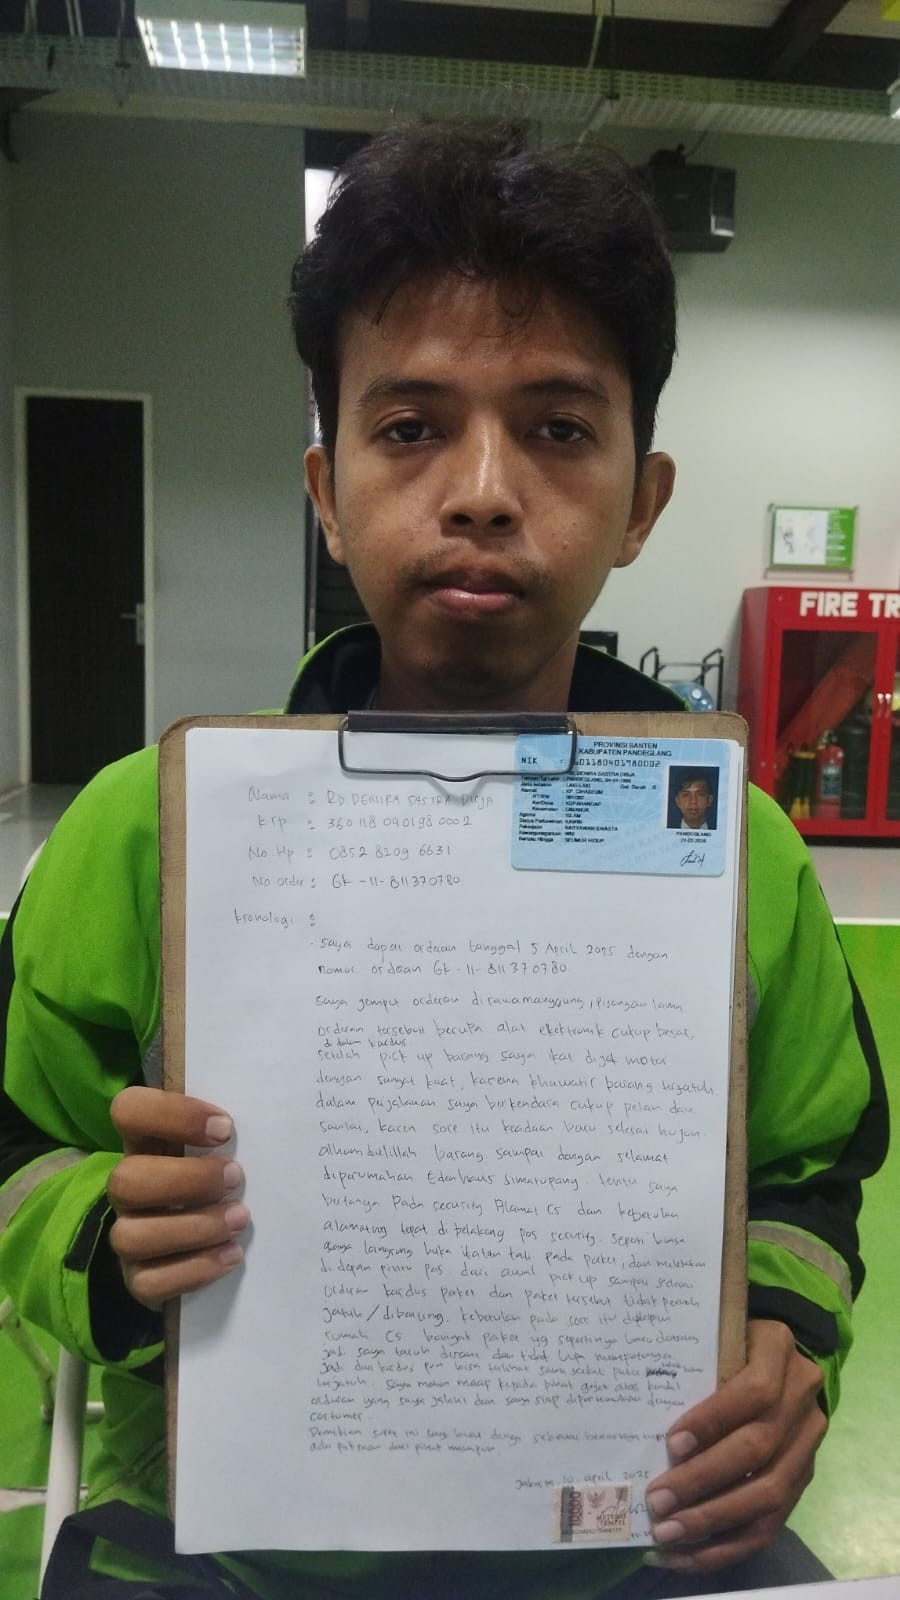 FIRE TR
PROVINSI BANTEN
KABUPATEN PANDEGLANG
NIK : 601180401980002
DENIRA SASTRA DIRJA
PANDEGLANG, 04-01-1998
LAKI-LAKI
KP. CIHASEUM
Agama : ISLAM
KAWIN
KARYAWAN SWASTA
WNI
SEUMUR HIDUP
PANDEGLANG
Nama : Rb DENIRA SASTRA DIRJA
KTP : 360 118 040198 0002
No Hp : 0852 8209 6631
No order : GK -11- 811370780
Kronologi :
- Saya dapat orderan tanggal 5 April 2025 dengan
nomor orderan GK -11- 811370780.
Saya jemput orderan di rawamangung, pisangan lama
orderan tersebut berupa alat elektronik cukup besar,
di dalam kardus.
setelah pick up barang saya ikat di jok motor
dengan sangat kuat, karena khawatir barang terjatuh
dalam perjalanan saya berkendara cukup pelan dan
santai, karen sore itu keadaan baru selesai hujan.
alhamdulillah barang sampai dengan selamat
diperumahan Edenhaus Simatupang. tentu saya
bertanya pada security Alamat CS dan kebetulan
alamatnya tepat di belakang pos security. seperti biasa
saya langsung buka ikatan tali pada paket, dan meletakan
di depan pintu pas. dari awal pick up sampai selesai
orderan kardus paket dan paket tersebut tidak pernah
jatuh / dibanting. kebetulan pada sore itu didepan
rumah CS banyak paket yg sepertinya baru datang
jadi saya taruh disana dan tidak lupa memfotonya.
jadi dari kardus pun bisa terlihat paket
terjatuh. Saya mohon maaf kepada pihat gojek atas kendal
orderan yang saya jalani dan saya siap dipertemukan dengan
costumer.
Demikian surat ini saya buat dengan sebenar benarnya tanpa
ada paksaan dari pihat manapun.
Jakarta, 10. april 2025
10000
METERAI
TEMPEL